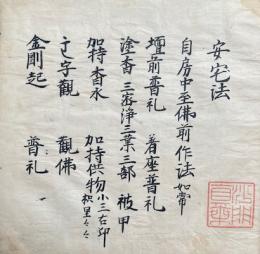 安宅法
自房中至佛前作法如常
壇前普礼 着座普礼
塗香 三密浄三業三部 被甲
加持香水 加持供物小三古印
字觀 觀佛
金剛起 普礼